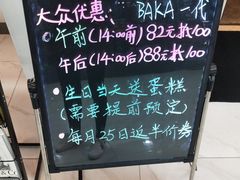 大众优惠： BAKA一代
·午前(14:00前)82元抵100
午后(14:00后)88元抵100
·生日当天送蛋糕
(需要提前预定)
·每月25日返半价券